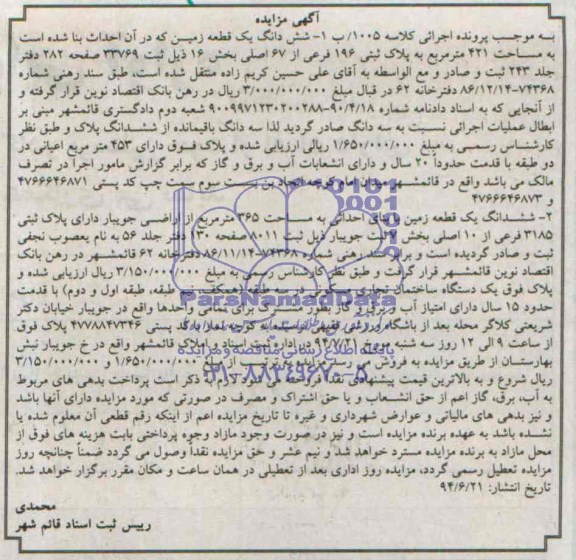 آگهی مزایده
به موجب پرونده اجرائی کلاسه ۱۰۰۵/ب ۱- شش دانگ یک قطعه زمین که در آن احداث بنا شده است
به مساحت ۴۲۱ مترمربع به پلاک ثبتی ۱۹۶ فرعی از ۶۷ اصلی بخش ۱۶ ذیل ثبت ۳۳۷۶۹ صفحه ۲۸۲ دفتر
جلد ۲۴۳ ثبت و صادر و مع الواسطه به آقای علی حسین کریم زاده منتقل شده است، طبق سند رهنی شماره
۷۴۳۶۸-۸۶/۱۲/۱۴ دفترخانه ۶۲ در قبال مبلغ ۳/۰۰۰/۰۰۰/۰۰۰ ریال در رهن بانک اقتصاد نوین قرار گرفته و
از آنجایی که به اسناد دادنامه شماره ۹۰/۴/۱۸-۹۰۰۹۹۷۱۲۳۰۲۰۰۲۸۸ شعبه دوم دادگستری قائمشهر مبنی بر
ابطال عملیات اجرائی نسبت به سه دانگ صادر گردید لذا سه دانگ باقیمانده از ششدانگ پلاک و طبق نظر
کارشناس رسمی به مبلغ ۱/۶۵۰/۰۰۰/۰۰۰ ریالی ارزیابی شده و پلاک فوق دارای ۴۵۳ متر مربع اعیانی در
دو طبقه با قدمت حدوداً ۲۰ سال و دارای انشعابات آب و برق و گاز که برابر گزارش مامور اجرا در تصرف
مالک می باشد واقع در قائمشهر میدان امام کوچه اتحاد بن بست سوم سمت چپ کد پستی ۴۷۶۶۶۴۶۸۷۱
و ۴۷۶۶۶۴۶۸۷۳
۲- ششدانگ یک قطعه زمین با بنای احداثی به مساحت ۳۶۵ مترمربع از اراضی جویبار دارای پلاک ثبتی
۳۱۸۵ فرعی از ۱۰ اصلی بخش ۷ ثبت جویبار ذیل ثبت ۸۰۱۱ صفحه ۱۳۰ دفتر جلد ۵۶ به نام یعصوب نجفی
ثبت و صادر گردیده است و برابر سند رهنی شماره ۷۴۳۶۸-۸۶/۱۱/۱۴ دفترخانه ۶۲ قائمشهر در رهن بانک
اقتصاد نوین قائمشهر قرار گرفت و طبق نظر کارشناس رسمی به مبلغ ۳/۱۵۰/۰۰۰/۰۰۰ ریال ارزیابی شده و
پلاک فوق یک دستگاه ساختمان تجاری مسکونی در سه طبقه (همکف، نیم طبقه، طبقه اول و دوم) با قدمت
حدود ۱۵ سال دارای امتیاز آب و برق و گاز بطور مشترک برای تمامی واحدها واقع در جویبار خیابان دکتر
شریعتی کلاگر محله بعد از باشگاه ورزشی فقیهی نرسیده به کوچه املاک کد پستی ۴۷۷۸۸۴۷۳۴۶ پلاک فوق
از ساعت ۹ الی ۱۲ روز سه شنبه مورخ ۹۴/۷/۲۱ در اداره ثبت اسناد و املاک قائمشهر واقع در خ جویبار نبش
بهارستان از طریق مزایده به فروش می رسد مزایده به ترتیب از مبلغ ۱/۶۵۰/۰۰۰/۰۰۰ و ۳/۱۵۰/۰۰۰/۰۰۰
ریال شروع و به بالاترین قیمت پیشنهادی نقداً فروخته می شود لازم به ذکر است پرداخت بدهی های مربوط
به آب، برق، گاز اعم از حق انشعاب و یا حق اشتراک و مصرف در صورتی که مورد مزایده دارای آنها باشد
و نیز بدهی های مالیاتی و عوارض شهرداری و غیره تا تاریخ مزایده اعم از اینکه رقم قطعی آن معلوم شده یا
نشده باشد به عهده برنده مزایده است و نیز در صورت وجود مازاد وجوه پرداختی بابت هزینه های فوق از
محل مازاد به برنده مزایده مسترد خواهد شد و نیم عشر و حق مزایده نقداً وصول می گردد ضمناً چنانچه روز
مزایده تعطیل رسمی گردد، مزایده روز اداری بعد از تعطیلی در همان ساعت و مکان مقرر برگزار خواهد شد.
تاریخ انتشار: ۹۴/۶/۲۱
محمدی
رییس ثبت اسناد قائم شهر
ParsNamadData
پایگاه اطلاع رسانی مناقصه و مزایده
۰۲۱-۸۸۳۴۹۶۷۰-۵